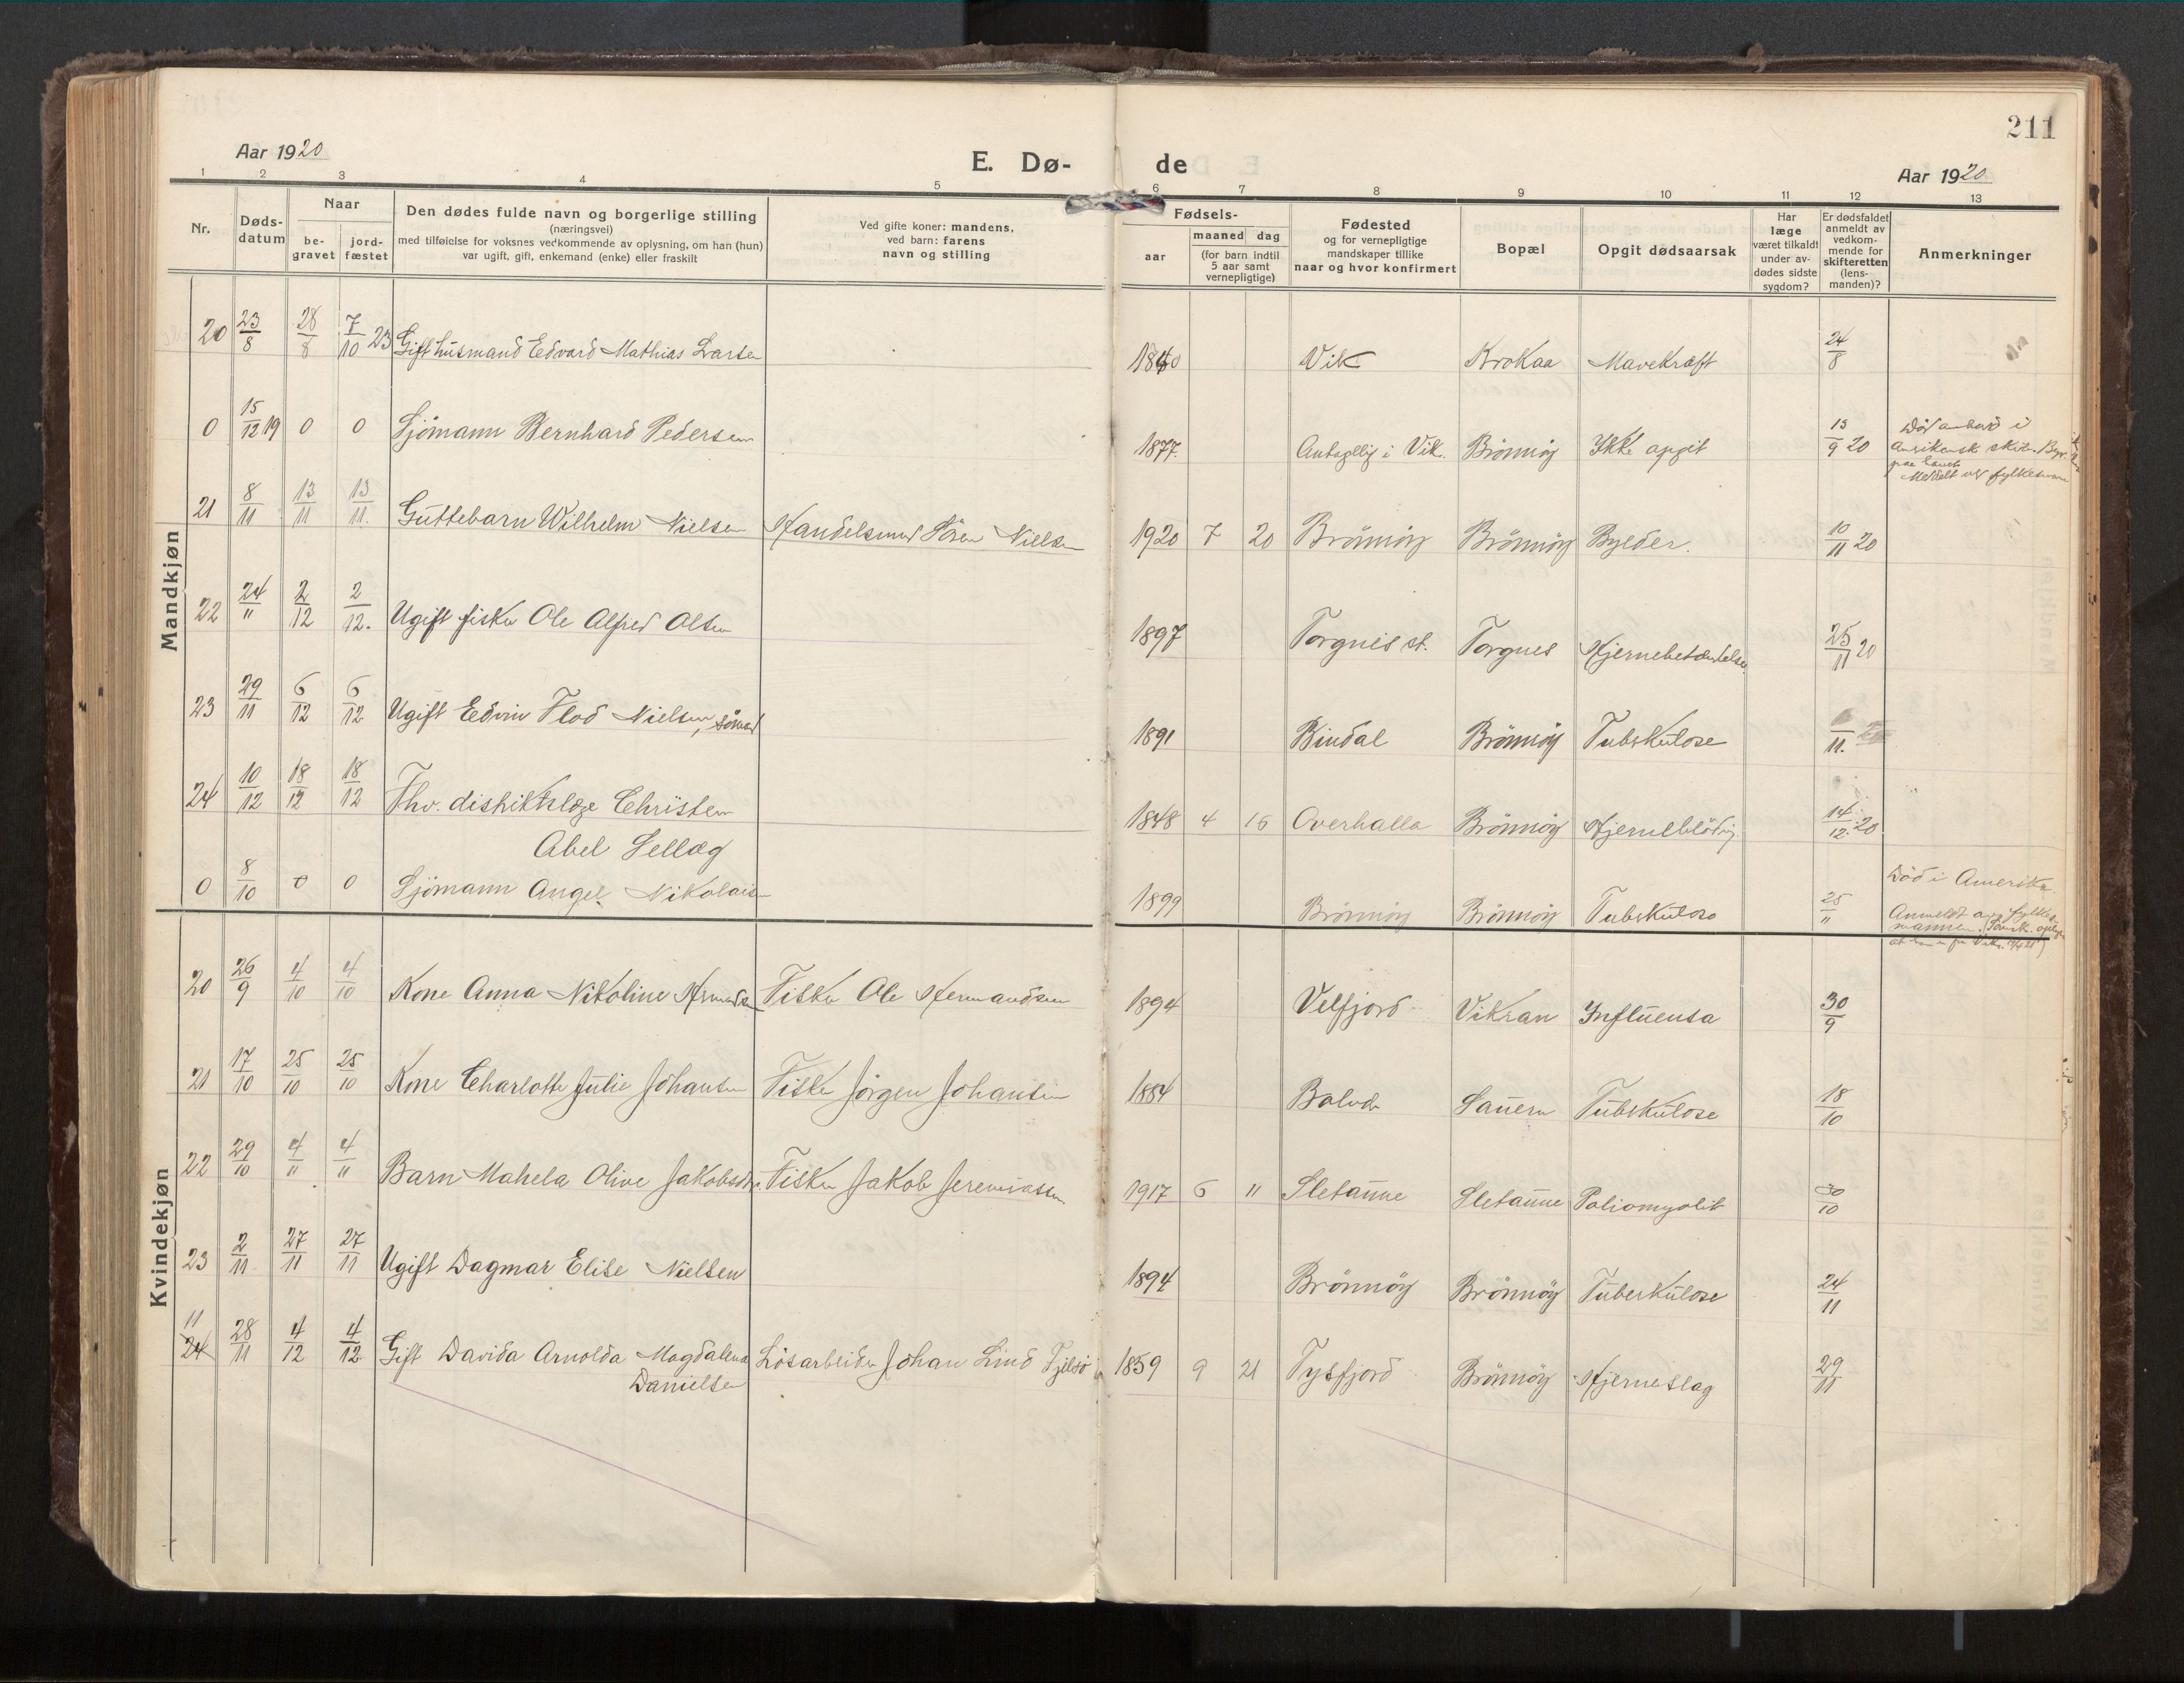 211
Aar 1920
E. Dø-
de
Aar 1920
1 2 3 4 5 6 7 8 9 10 11 12 13
Nr.
Døds-
datum
Naar
be-
gravet
jord-
fæstet
Den dødes fulde navn og borgerlige stilling
(næringsvei)
med tilføielse for voksnes vedkommende av oplysning, om han (hun)
var ugift, gift, enkemand (enke) eller fraskilt
Ved gifte koner: mandens,
ved barn: farens
navn og stilling
Fødsels-
aar
maaned dag
(for barn indtil
5 aar samt
vernepligtige)
Fødested
og for vernepligtige
mandskaper tillike
naar og hvor konfirmert
Bopæl
Opgit dødsaarsak
Har
læge
været tilkaldt
under av-
dødes sidste
sygdom?
Er dødsfaldet
anmeldt av
vedkom-
mende for
skifteretten
(lens-
manden)?
Anmerkninger
Mandkjøn
20 23/8 28/8 7/10 23 Gift husmand Edvard Mathias Larsen 1840 Vik Krokaa Mavekræft 24/8
0 15/12 19 0 0 Sjømann Bernhard Pedersen 1877. Antagelig i Vik. Brönnöy Ikke opgit 13/9 20 Död ombord i
amrikansk skib.
Meddelt av fylkesmann
21 8/11 13/11 13/11. Guttebarn Wilhelm Nielsen Handelsmand Sören Nielsen 1920 7 20 Brönnöy Brönnöy Bylder. 10/11 20
22 24/11 2/12 2/12. Ugift fisker Ole Alfred Olsen 1897 Torgnes st. Torgnes Hjernebetændelse. 25/11 20
23 29/11 6/12 6/12 Ugift Edvin Flod Nielsen, 1891 Bindal Brönnöy Tuberkulose /11.
24 10/12 18/12 18/12 Fhv. distriktslæge Christen
Abel Sellæg 1848 4 16 Overhalla Brönnöy Hjerneblödning 14/12. 20
0 8/10 0 0 Sjömann Angel Nikolaisen 1899 Brönnöy Brönnöy Tuberkulose 25/11 Död i Amerika.
Anmeldt av fylkes-
mannen.
Kvindekjøn
20 26/9 4/10 4/10 Kone Anna Nikoline Hermandsen Fisker Ole Hermandsen 1894 Velfjord Vikran Influensa 30/9
21 17/10 25/10 25/10 Kone Charlotte Julie Johansen Fisker Jörgen Johansen 1884 Sauren Tuberkulose 18/10
22 29/10 4/11 4/11 Barn Mahela Olive Jakobsen Fisker Jakob Jeremiassen 1917 6 11 Sletaune Sletaune Poliomyelit 30/10
23 2/11 27/11 27/11 Ugift Dagmar Elise Nielsen 1894 Brönnöy Brönnöy Tuberkulose 24/11
11
24 28/11 4/12 4/12 Gift Davida Arnolda Magdalena
Danielsen Lösarbeider Johan Lind 1859 9 21 Tysfjord Brönnöy Hjerneslag 29/11